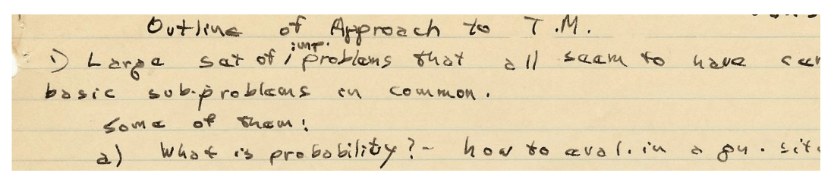 Outline of Approach to T.M.
1) Large set of imp. problems that all seem to have cer
basic sub-problems in common.
Some of them:
a) What is probability? - how to eval. in a gn. sit.